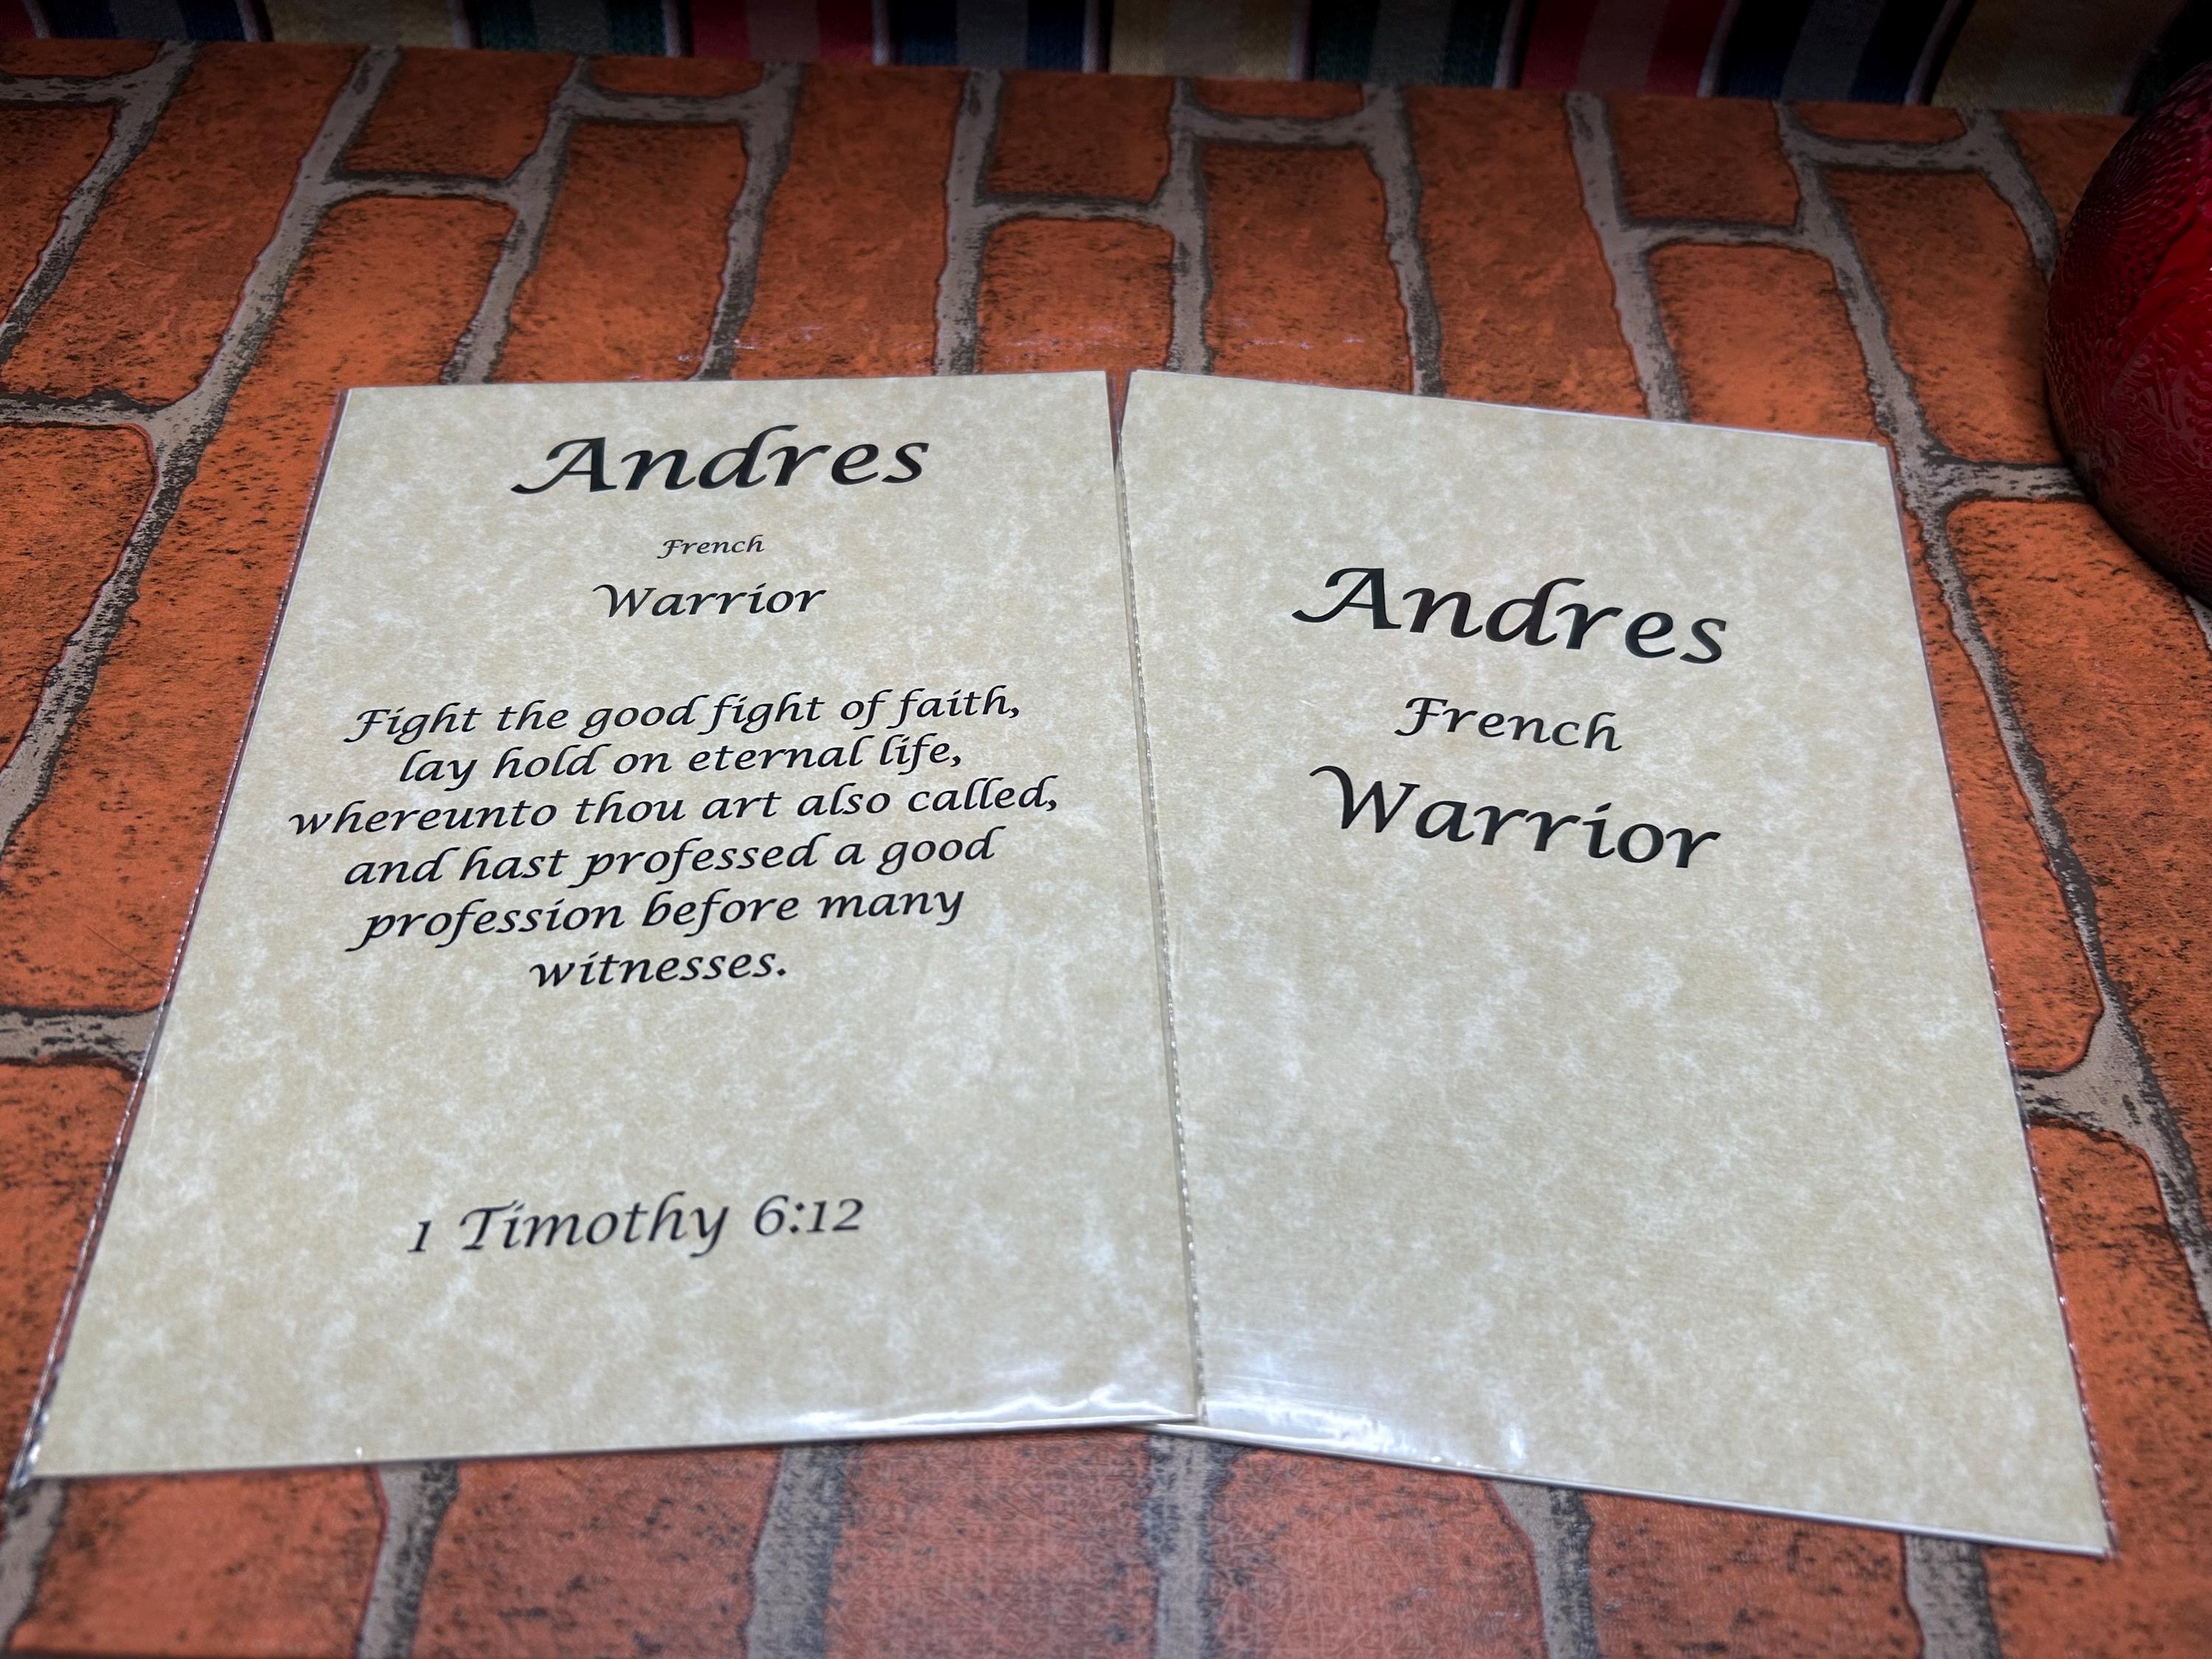 Andres
French
Warrior
Fight the good fight of faith,
lay hold on eternal life,
whereunto thou art also called,
and hast professed a good
profession before many
witnesses.
1 Timothy 6:12
Andres
French
Warrior